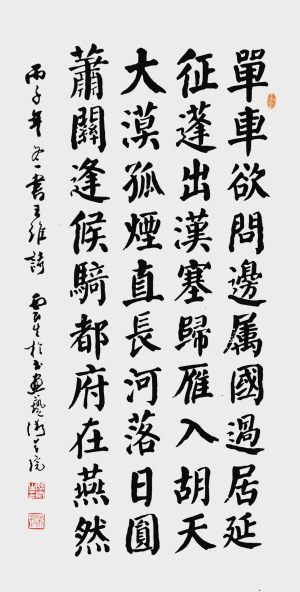 單車欲問邊属國過居延
征蓬出漢塞歸雁入胡天
大漠孤煙直長河落日圓
蕭關逢候騎都府在燕然
丙子年冬書王維詩 生於书畫藝術学院